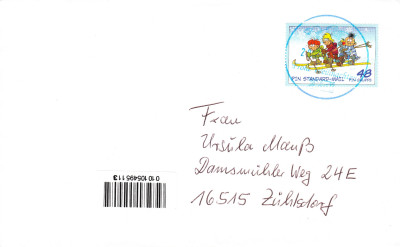 PIN STANDARD-MAIL 48
Frau
Ursula Mauß
Damsmühler Weg 24E
16515 Zühlsdorf
01 0105495 113